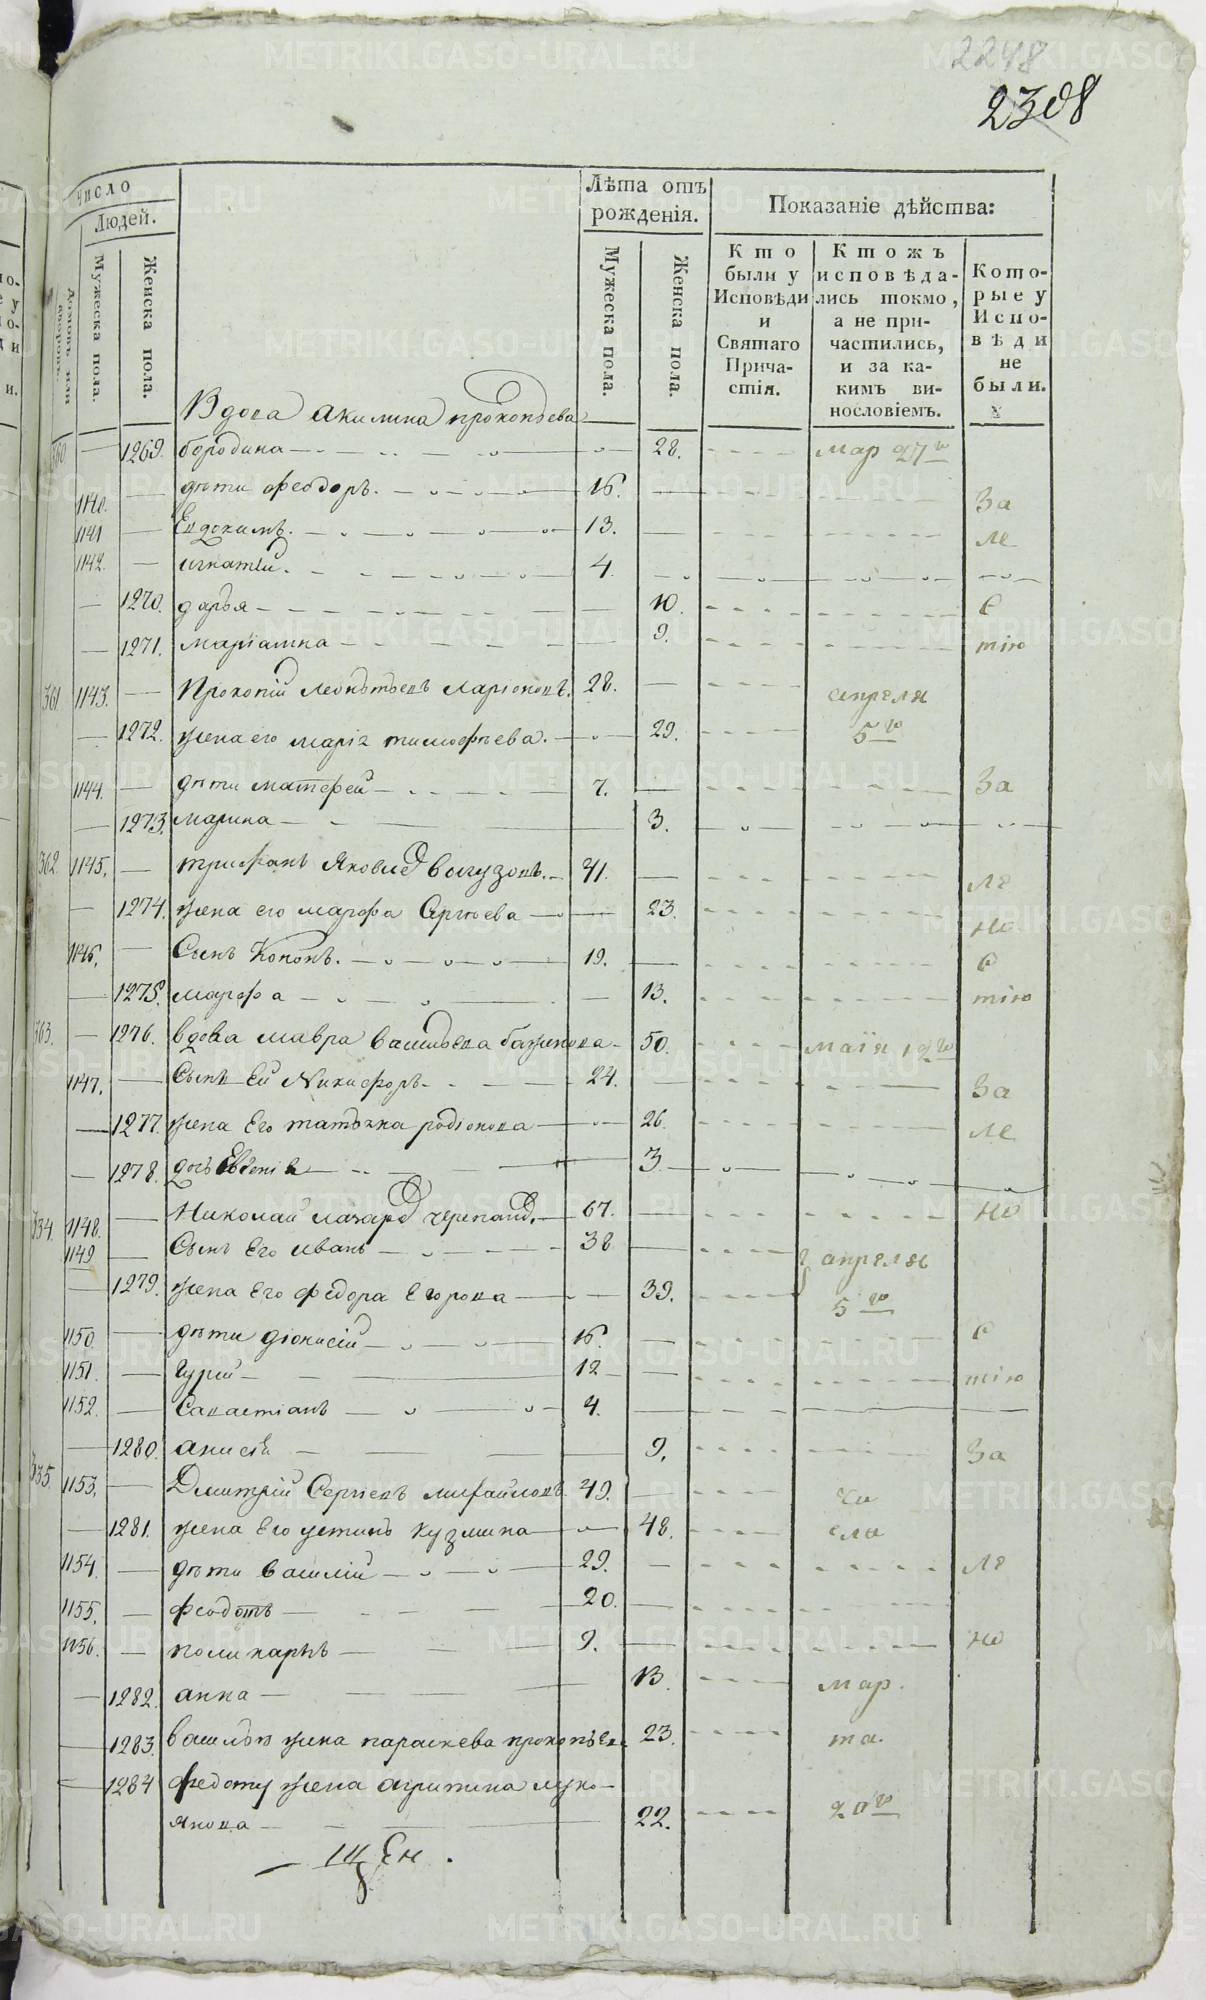 2248
2308
Число
Людей.
Домовъ или дворовъ.
Мужеска пола.
Женска пола.
Лѣта отъ рожденія.
Мужеска пола.
Женска пола.
Показаніе дѣйства:
Кто были у Исповѣди и Святаго Причастія.
Ктожъ исповѣдались токмо, а не причастились, и за какимъ винословіемъ.
Которые у Исповѣди не были.
Вдова Акилина прокопьева
360 1269. бородина 28. мар 27го
1140. дѣти феодоръ. 16. За
1141 Евдокимъ. 13. ле
1142. игнатій. 4.
1270. дарья 10. с
1271. маріамна 9. тію
361. 1143. Прокопій Леонтьевъ Ларіоновъ. 28. апреля
1272. жена его марія тимофѣева. 29. 5го
1144. дѣти матфей 7. За
1273. марина 3.
362. 1145. трифанъ Яковле 41. ле
1274. жена его марфа Сергѣева 23. но
1146. Сынъ Кононъ. 19. с
1275. марфа 13. тію
363. 1276. вдова мавра васильева баженова 50. маія
1147. Сынъ Ей Никифоръ 24. За
1277. жена Его татьяна родіонова 26. ле
1278. дочь Евгенія 3
334. 1148. Николай лазаре черепано. 67. но
1149 Сынъ Его иванъ 38 апреля
1279. жена Его федора Егорова 39. 5го
1150. дѣти діонисій 16. с
1151. Гурій 12 тію
1152. Савастіанъ 4.
1280. анисія 9. За
335. 1153. Дмитрій Сергіевъ михайловъ. 49. чи
1281. жена Его устинь кузмина 48. сла
1154. дѣти василій 29. ле
1155. феодотъ 20.
1156. поликарпъ 9. но
1282. анна 13. мар.
1283. василью жена параскева прокопьева 23. та.
1284 федоту жена агрипина луко-
янова 22. 20го